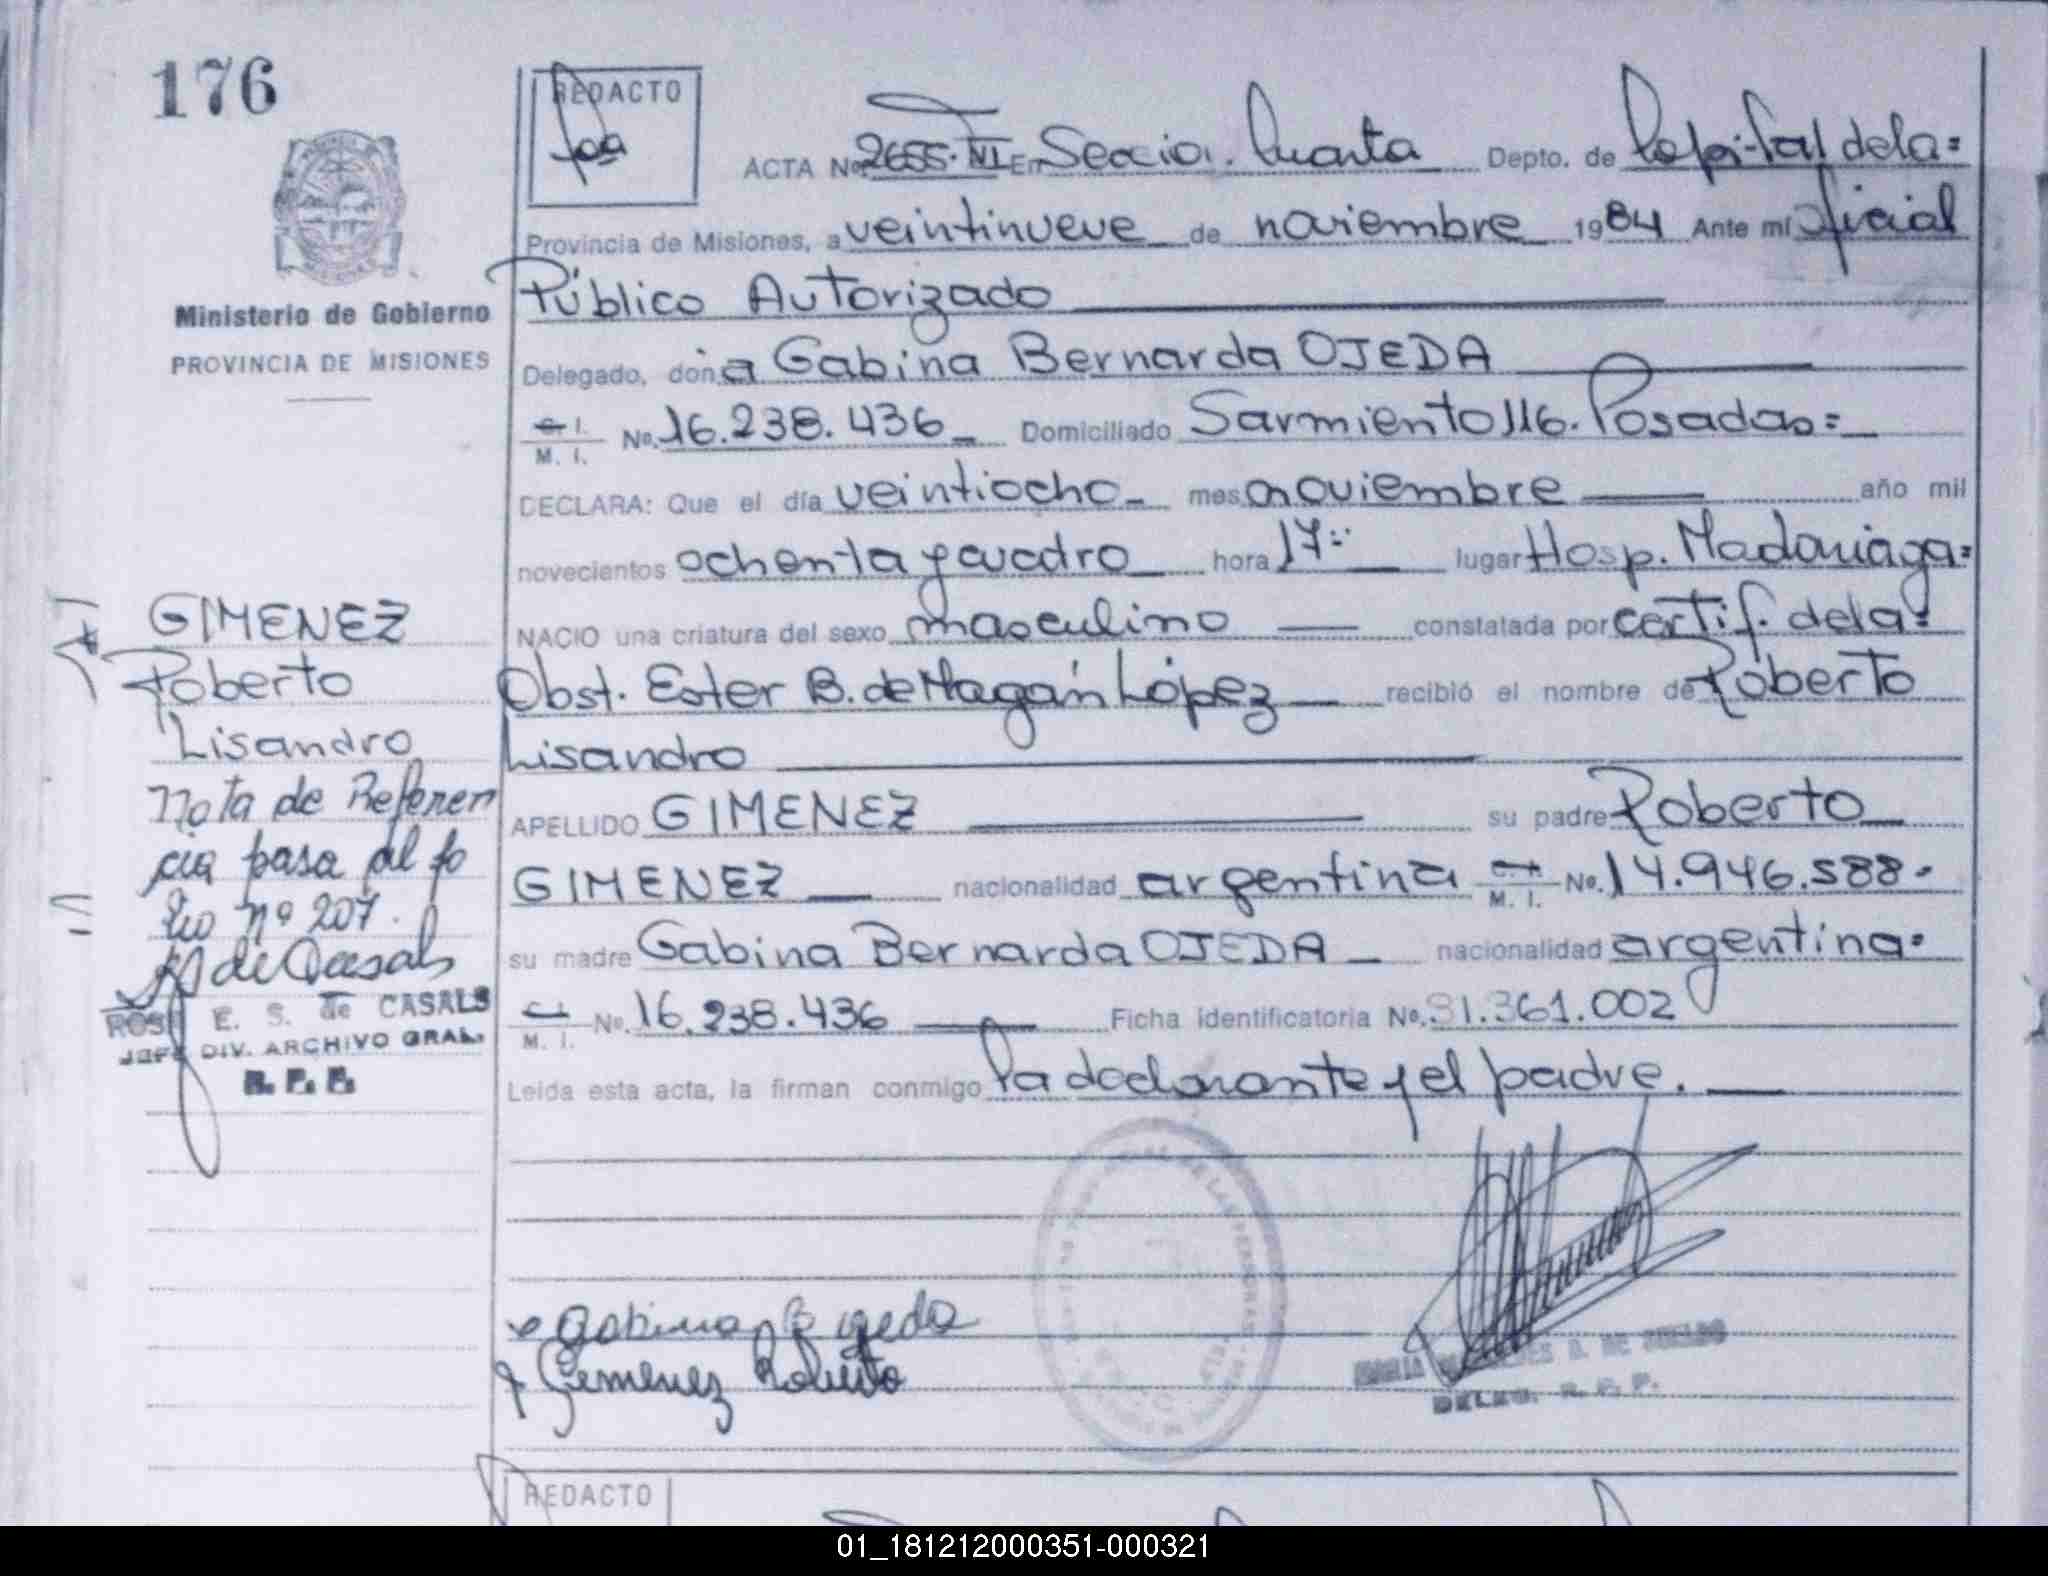 176
REDACTO
ACTA No. 2655-VI En Sección Cuarta Depto. de Capital de la=
Provincia de Misiones, a veintinueve de noviembre 1984 Ante mí Oficial
Público Autorizado
Ministerio de Gobierno
PROVINCIA DE MISIONES
Delegado, doña Gabina Bernarda OJEDA
C. I.
M. I. No. 16.238.436 Domiciliado Sarmiento 116. Posadas=
DECLARA: Que el día veintiocho mes noviembre año mil
novecientos ochenta y cuatro hora 17:= lugar Hosp. Madariaga=
NACIO una criatura del sexo masculino constatada por certif. de la=
Obst. Ester B. de Magán López recibió el nombre de Roberto
Lisandro
APELLIDO GIMENEZ su padre Roberto
GIMENEZ nacionalidad argentina M. I. No. 14.946.588.
su madre Gabina Bernarda OJEDA nacionalidad argentina=
C. I.
M. I. No. 16.238.436 Ficha identificatoria No. 31.361.002
Leída esta acta, la firman conmigo la declarante y el padre.
GIMENEZ
Roberto
Lisandro
Nota de Referen
cia pasa al fo
lio nº 207.
de Casals
ROSA E. S. de CASALS
JEFE DIV. ARCHIVO GRAL.
R. P. P.
Gabina B ojeda
Gimenez Roberto
DELEG. R. P. P.
REDACTO
01_181212000351-000321